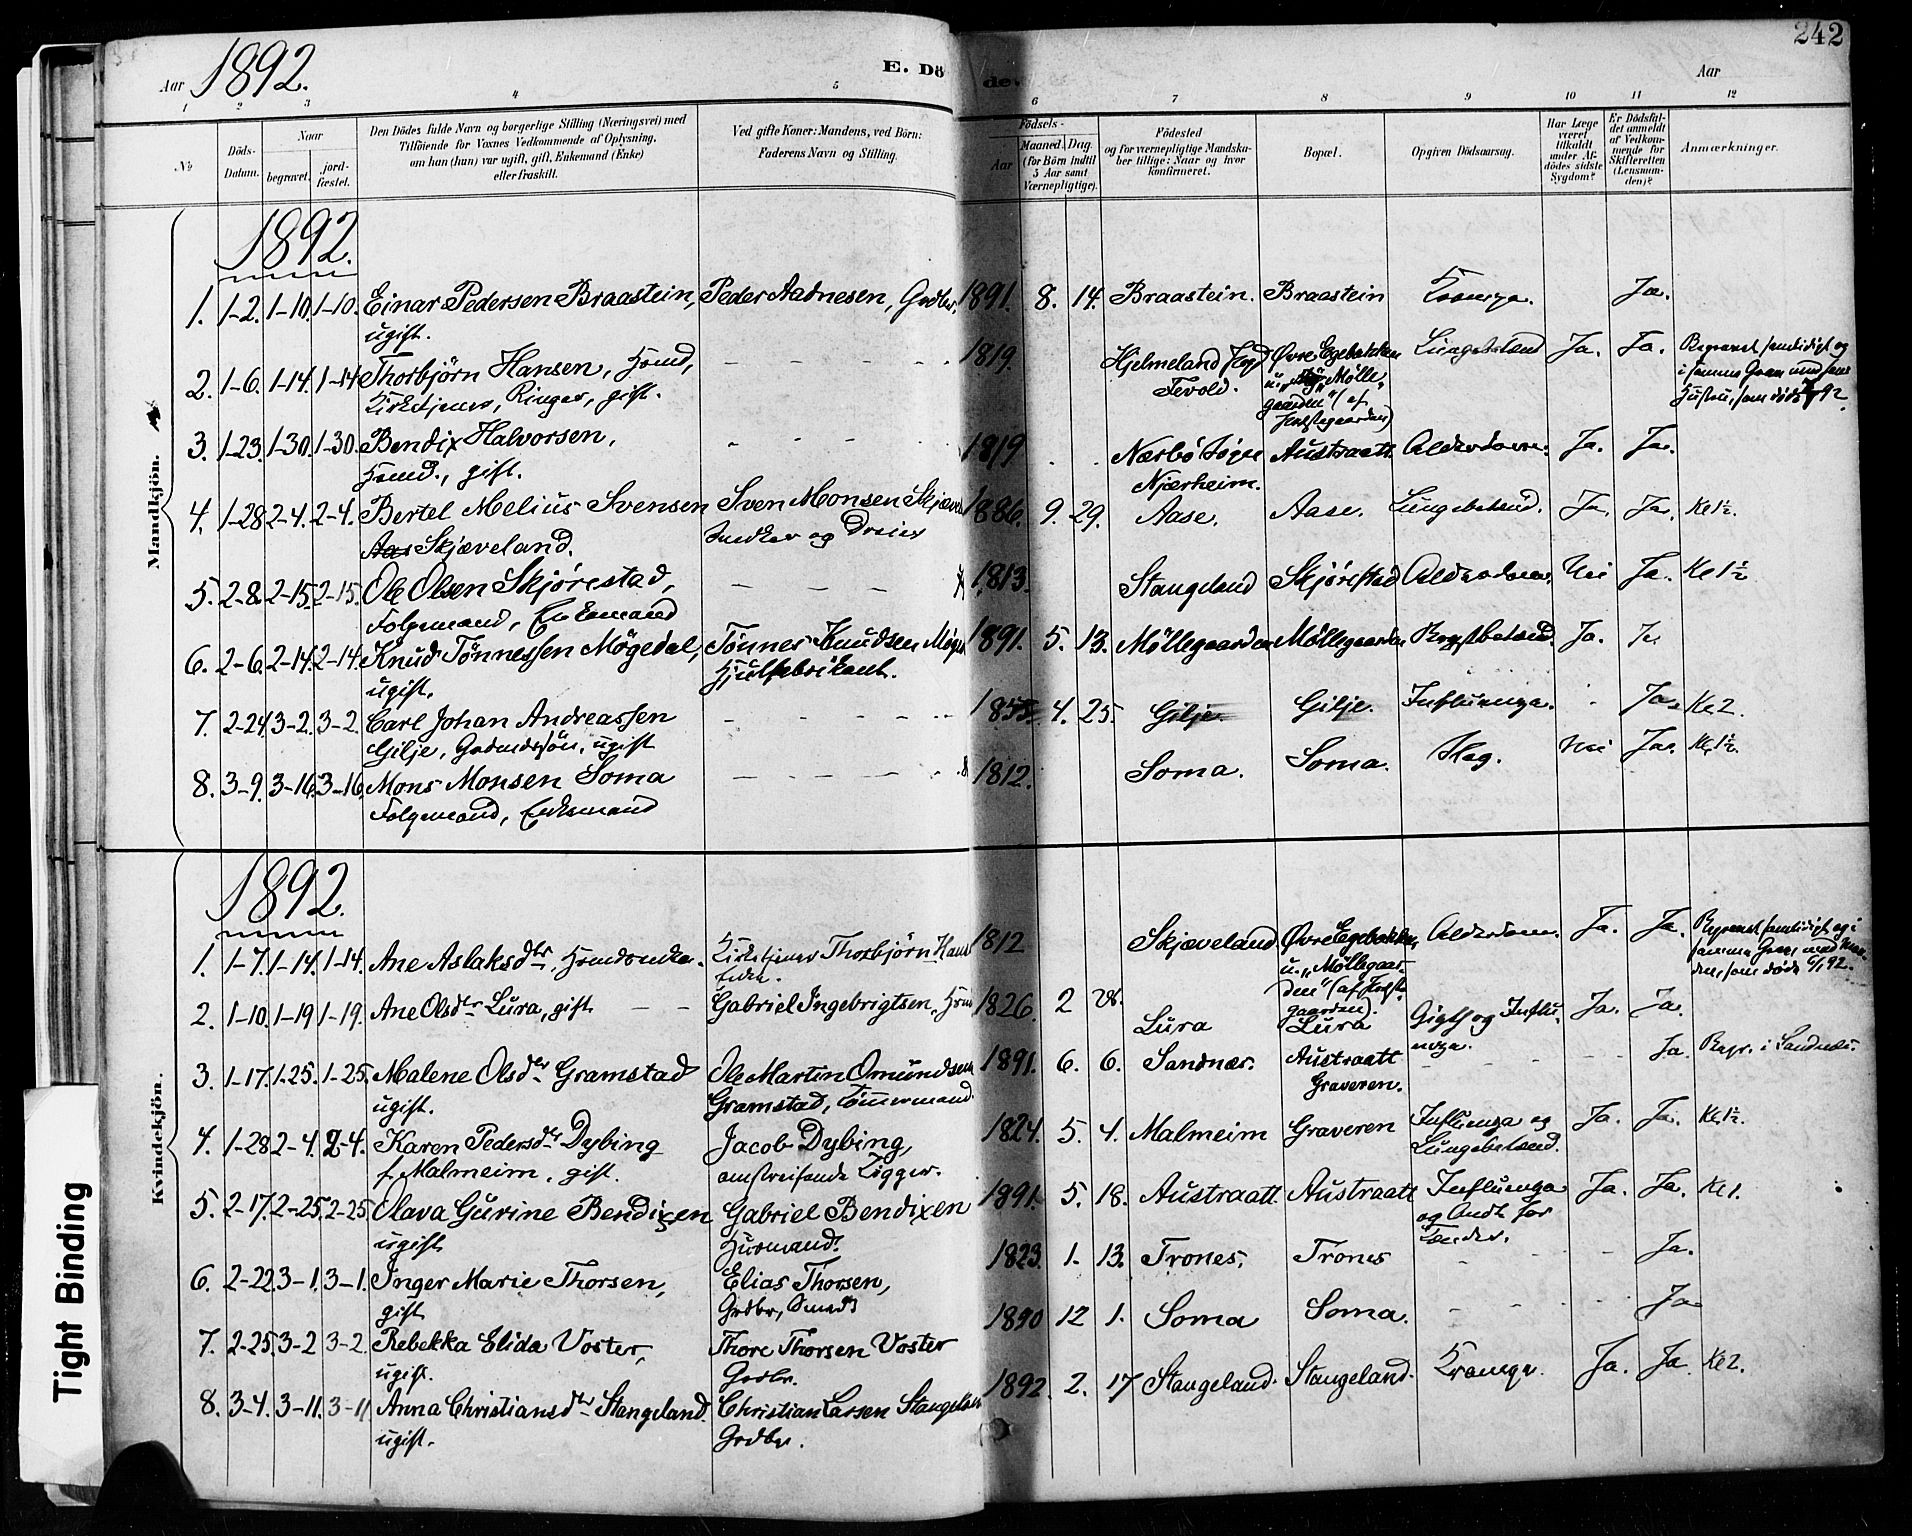 242
Aar 1892. E. Dö de. Aar
1 2 3 4 5 6 7 8 9 10 11 12
№ Döds-Datum. Naar begravet. jord-fæstet. Den Dödes fulde Navn og borgerlige Stilling (Næringsvei) med Tilföiende for Voxnes Vedkommende af Oplysning, om han (hun) var ugift, gift, Enkemand (Enke) eller fraskilt. Ved gifte Koner: Mandens, ved Börn: Faderens Navn og Stilling. Födsels- Aar Maaned. Dag. (for Börn indtil 5 Aar samt Værnepligtige). Födested og for værnepligtige Mandskaber tillige: Naar og hvor konfirmeret. Bopæl. Opgiven Dödsaarsag. Har Læge været tilkaldt under Afdödes sidste Sygdom? Er Dödsfaldet anmeldt af Vedkommende for Skifteretten (Lensmanden)? Anmærkninger.
Mandkjön.
1892.
1. 1-2. 1-10. 1-10. Einar Pedersen Braastein, Peder Aadnesen, Grdbr. 1891. 8. 14. Braastein. Braastein Krampe. Ja.
ugift.
2. 1-6. 1-14. 1-14 Thorbjörn Hansen, Hmd, — — — 1819. Hjelmeland Øvre Egebakken Lungebetænd Ja. Ja. Begravet samtidigt og
Kirketjener, Ringer, gift. Tevold. u. "Møllegaarden" (af i samme Grav med sin Hustru, som døde 7/1 92.
3. 1-23. 1-30. 1-30. Bendix Halvorsen, — — — 1819 Nærbö Sogn Austraatt. Alderdom. Ja. Ja.
Hmd., gift. Njærheim.
4. 1-28. 2-4. 2-4. Bertel Melius Svensen Sven Monsen 1886. 9. 29. Aase. Aase. Lungebetænd. Ja. Ja. Ke 1½.
Skjæveland. Snedker og Dreier
5. 2-8. 2-15. 2-15. Ole Olsen Skjörestad, — — — 1813. Stangeland Skjörestad Alderdom. Nei Ja. Ke 1½
Folgemand, Enkemand
6. 2-6. 2-14. 2-14. Knud Tönnessen Mögedal, Tönnes Knudsen 1891. 5. 13. Møllegaarden Møllegaarden Brystbetænd. Ja. Ja
ugift. Hjulfabrikant.
7. 2-24. 3-2. 3-2. Carl Johan Andreassen — — — 1855. 4. 25. Gilje Gilje. Influenza. Ja. Ke 2.
Gilje, Grdmdssön, ugift
8. 3-9. 3-16. 3-16. Mons Monsen Soma — — — 1812. Soma. Soma. Slag. Nei Ja. Ke 1½.
Folgemand, Enkemand
Kvindekjön.
1892.
1. 1-7. 1-14. 1-14. Ane Aslaksdtr, Kirketjener Thorbjörn 1812 Skjæveland. Øvre Egebakken Alderdom. Ja. Ja. Begravet samtidigt og i
u. "Møllegaarden" (af samme Grav med Manden, som døde 6/1 92.
2. 1-10. 1-19 1-19. Ane Olsdtr Lura, gift — — Gabriel Ingebrigtsen, Hmd 1826. 2 Lura Lura Gigtf. og Influenza. Ja. Ja.
3. 1-17. 1-25. 1-25. Malene Olsdtr Gramstad Ole Martin Omundsen 1891. 6. 6. Sandnæs. Austraatt — — — Ja. Begr. i Sandnæs.
ugift. Gramstad, Tömmermand. Graveren.
4. 1-28. 2-4. 2-4. Karen Pedersdtr Dybing Jacob Dybing, 1824. 5. 4. Malmeim Graveren Influenza og Ja. Ja. Ke 1½.
f. Malmeim, gift. omstreifende Tigger. Lungebetænd.
5. 2-17. 2-25. 2-25. Olava Gurine Bendixen Gabriel Bendixen 1891. 5. 18. Austraatt Austraatt Influenza Ja. Ja. Ke 1.
ugift Husmand. og Ondt for Tænder.
6. 2-22. 3-1. 3-1. Inger Marie Thorsen, Elias Thorsen, 1823. 1. 13. Trones. Trones — — — Ja.
gift Grdbr, Smed
7. 2-25. 3-2 3-2. Rebekka Elida Voster, Thore Thorsen Voster 1890 12 1. Soma Soma. — — — Ja
ugift. Grdbr.
8. 3-4. 3-11. 3-11 Anna Christiansdtr Stangeland. Christian Larsen Stangeland 1892. 2. 17 Stangeland. Stangeland. Krampe. Ja. Ja. Ke 2.
ugift. Grdbr.
Tight Binding